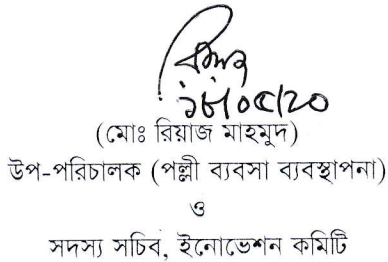 ১৮/০৫/২০
(মোঃ রিয়াজ মাহমুদ)
উপ-পরিচালক (পল্লী ব্যবসা ব্যবস্থাপনা)
ও
সদস্য সচিব, ইনোভেশন কমিটি